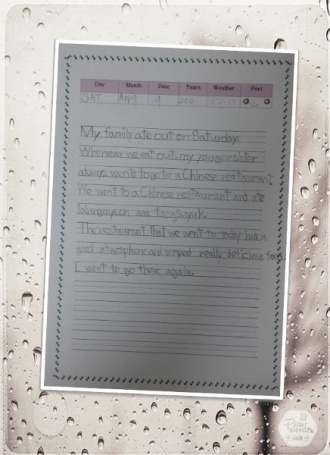 Day Month Date Years Weather Feel
SAT April 9
My family ate out on Saturday.
Whenever we eat out, my younger sister
always wants to go to a Chinese restaurant.
We went to a Chinese restaurant and ate
and tangsuyuk.
The restaurant that we went to today had a
good atmosphere and served really delicious food.
I want to go there again.